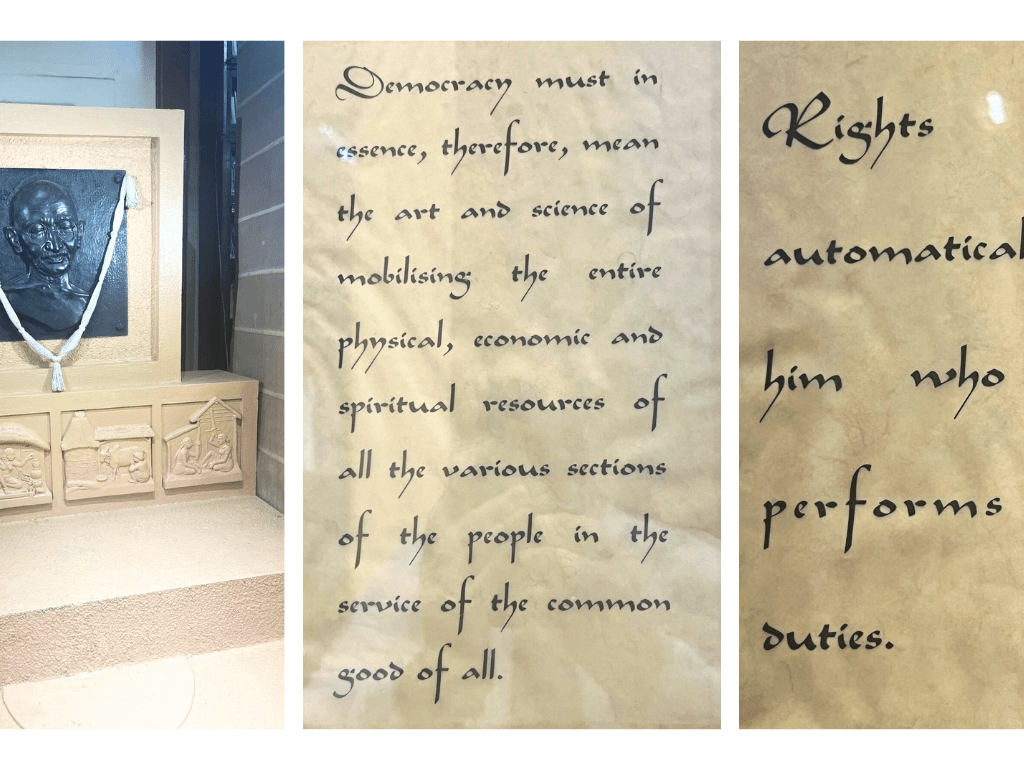 Democracy must in
essence, therefore, mean
the art and science of
mobilising the entire
physical, economic and
spiritual resources of
all the various sections
of the people in the
service of the common
good of all.
Rights
automatical
him who
performs
duties.